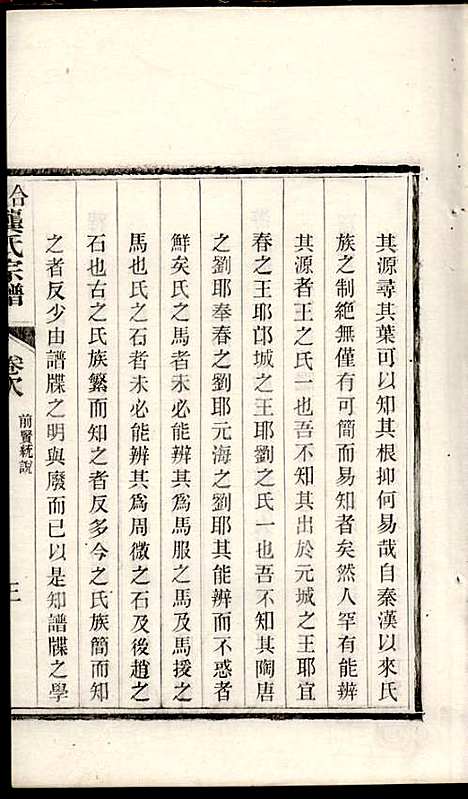 其源尋其葉可以知其根抑何易哉自秦漢以來氏
族之制絶無僅有可簡而易知者矣然人罕有能辨
其源者王之氏一也吾不知其出於元城之王耶宜
春之王耶邙城之王耶劉之氏一也吾不知其陶唐
之劉耶奉春之劉耶元海之劉耶其能辨而不惑者
鮮矣氏之馬者未必能辨其爲馬服之馬及馬援之
馬也氏之石者未必能辨其爲周微之石及後趙之
石也古之氏族繁而知之者反多今之氏族簡而知
之者反少由譜牒之明與廢而已以是知譜牒之學
龔氏宗譜
卷次
前賢統說
三